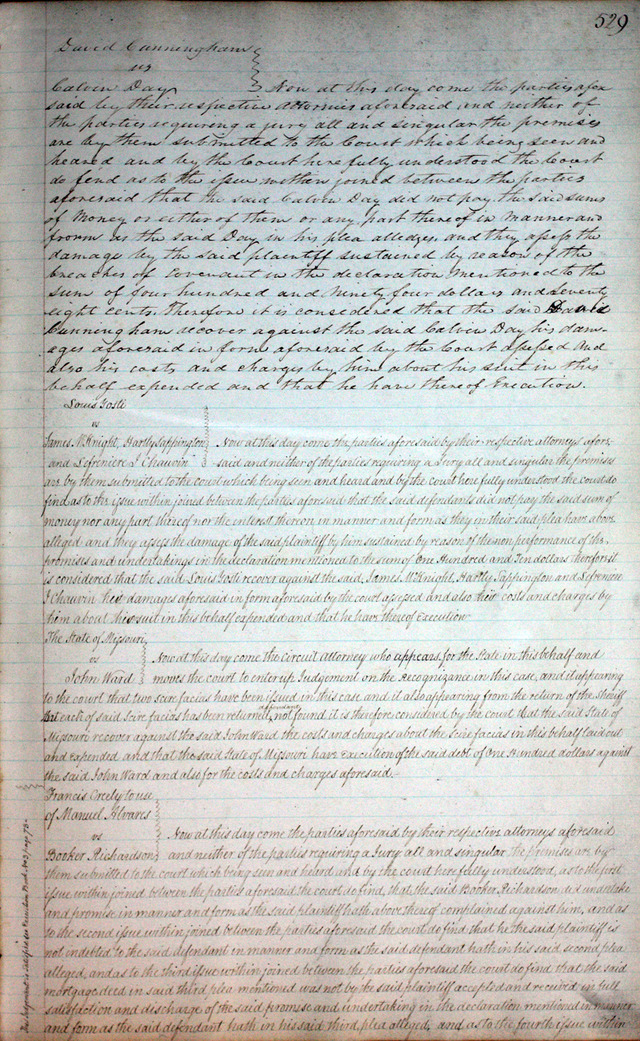 529
David Cunningham
vs
Calvin Day Now at this day come the parties afore
said by their respective attornies aforesaid and neither of
the parties requiring a jury all and singular the premises
are by them submitted to the Court which being seen and
heared and by the Court here fully understood the Court
do find as to the issue within joined between the parties
aforesaid that the said Calvin Day did not pay the said sums
of Money or either of them or any part thereof in manner and
froom as the said Day in his plea alledges and they assess the
damage by the said plaintiff sustained by reason of the
breaches of Covenant in the declaration Mentioned to the
sum of four hundred and Ninety four dollars and seventy
eight cents. Therefore it is considered that the said David
Cunningham recover against the said Calvin Day his dam-
ages aforesaid in form aforesaid by the Court assessed And
also his costs and charges by him about his suit in this
behalf expended and that he have thereof Execution.
Louis Gosti
vs
James McKnight, Hartly Sappington Now at this day come the parties aforesaid by their respective attorneys afore
and Lefreniere J Chauvin said and neither of the parties requiring a Jury all and singular the premises
are by them submitted to the court which being seen and heard and by the court here fully understood the court do
find as to the issue within joined between the parties aforesaid that the said defendants did not pay the said sum of
money nor any part thereof nor the interest thereon in manner and form as they in their said plea have above
alleged and they assess the damage of the said plaintiff by him sustained by reason of the non performance of the
promises and undertakings in the declaration mentioned to the sum of One Hundred and Ten dollars therefore it
is considered that the said Louis Gosti recover against the said James McKnight, Hartly Sappington and Lefreniere
J Chauvin his damages aforesaid in form aforesaid by the court assessed and also his costs and charges by
him about his suit in this behalf expended and that he have thereof Execution
The State of Missouri
vs Now at this day come the Circuit Attorney who appears for the State in this behalf and
John Ward moves the court to enter up Judgement on the Recognizance in this case, and it appearing
to the court that two scire facias have been issued in this case and it also appearing from the return of the Sheriff
that each of said Scire facias has been returned, defendant not found, it is therefore considered by the court that the said State of
Missouri recover against the said John Ward the costs and charges about the scire facias in this behalf laid out
and expended and that the said State of Missouri have Execution of the said debt of One Hundred dollars against
the said John Ward and also for the costs and charges aforesaid.
Francis Creely to use
of Manuel Alvares
vs Now at this day come the parties aforesaid by their respective attorneys aforesaid
Booker Richardson and neither of the parties requiring a Jury all and singular the premises are by
them submitted to the court which being seen and heard and by the court here fully understood, as to the first
issue within joined between the parties aforesaid the court do find, that the said Booker Richardson did undertake
and promise in manner and form as the said plaintiff hath above thereof complained against him, and as
to the second issue within joined between the parties aforesaid the court do find that he the said plaintiff is
not indebted to the said defendant in manner and form as the said defendant hath in his said second plea
alleged, and as to the third issue within joined between the parties aforesaid the court do find that the said
mortgage deed in said third plea mentioned was not by the said plaintiff accepted and receivd in full
satisfaction and discharge of the said promise and undertaking in the declaration mentioned in manner
and form as the said defendant hath in his said third plea alleged, and as to the fourth issue within